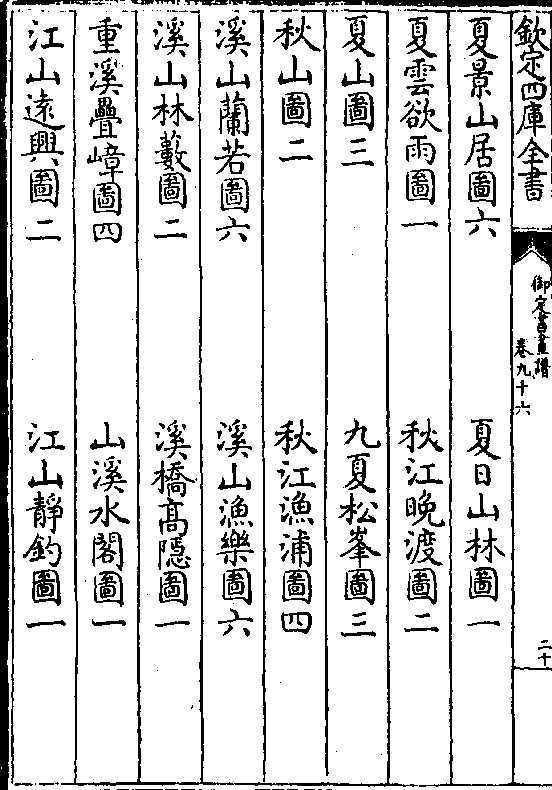 欽定四庫全書
御定書畫譜
卷九十六
二十
夏景山居圖六　夏日山林圖一
夏雲欲雨圖一　秋江晚渡圖二
夏山圖三　九夏松峯圖三
秋山圖二　秋江漁浦圖四
溪山蘭若圖六　溪山漁樂圖六
溪山林藪圖二　溪橋高隱圖一
重溪疊嶂圖四　山溪水閣圖一
江山遠興圖二　江山靜釣圖一